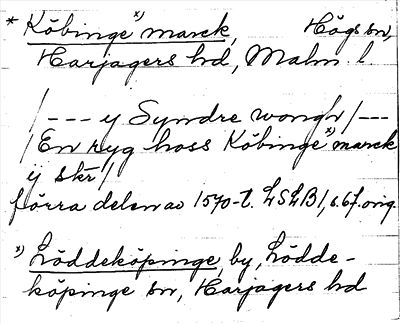 * Köbinge x) marck, Högs sn,
Harjagers hd, Malm. l.
/--- y Syndre wongh /---
/ En ryg hoss Köbinge x) marck
ij skr /
förra delen av 1570-t. LSLB1, s. 67. orig.
x) Löddeköpinge, by, Lödde-
köpinge sn, Harjagers hd